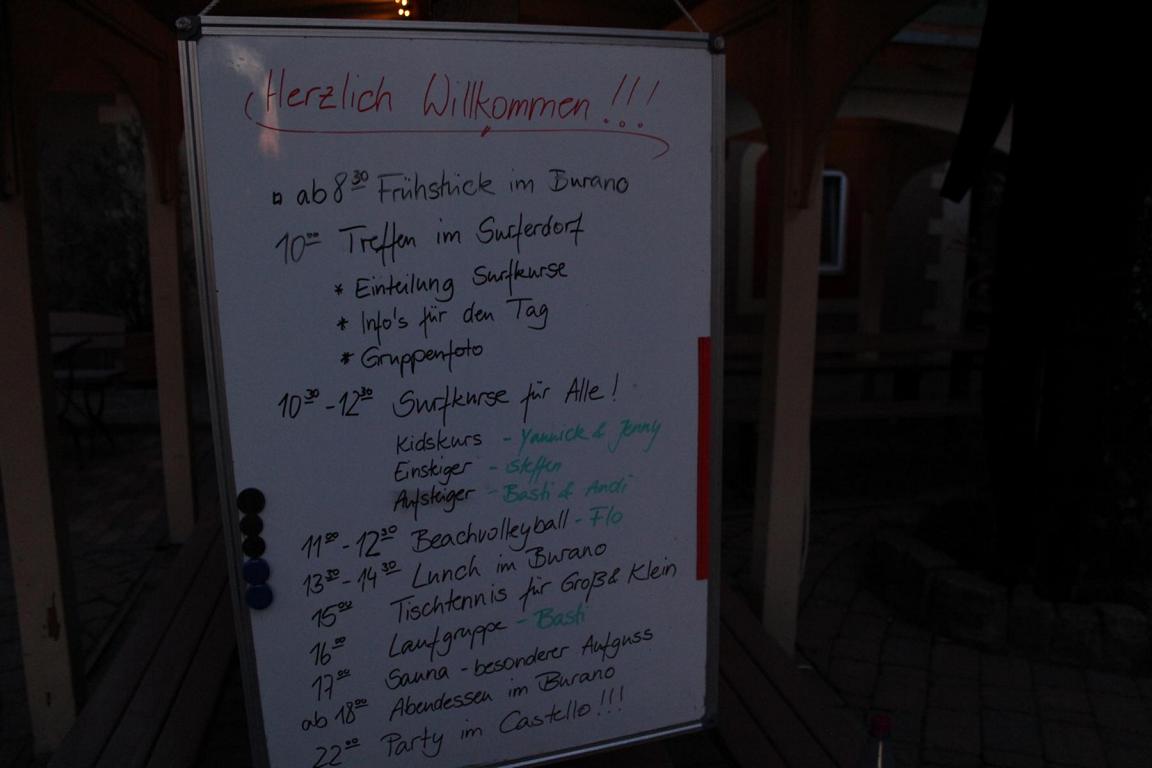 Herzlich Willkommen !!!
ab 8³⁰ Frühstück im Burano
10⁰⁰ Treffen im Surferdorf
* Einteilung Surfkurse
* Info's für den Tag
* Gruppenfoto
10³⁰ - 12³⁰ Surfkurse für Alle !
Kidskurs - Yannick & Jenny
Einsteiger - Steffen
Aufsteiger - Basti & Andi
11⁰⁰ - 12³⁰ Beachvolleyball - Flo
13³⁰ - 14³⁰ Lunch im Burano
15⁰⁰ Tischtennis für Groß & Klein
16⁰⁰ Laufgruppe - Basti
17⁰⁰ Sauna - besonderer Aufguss
ab 18⁰⁰ Abendessen im Burano
22⁰⁰ Party im Castello !!!